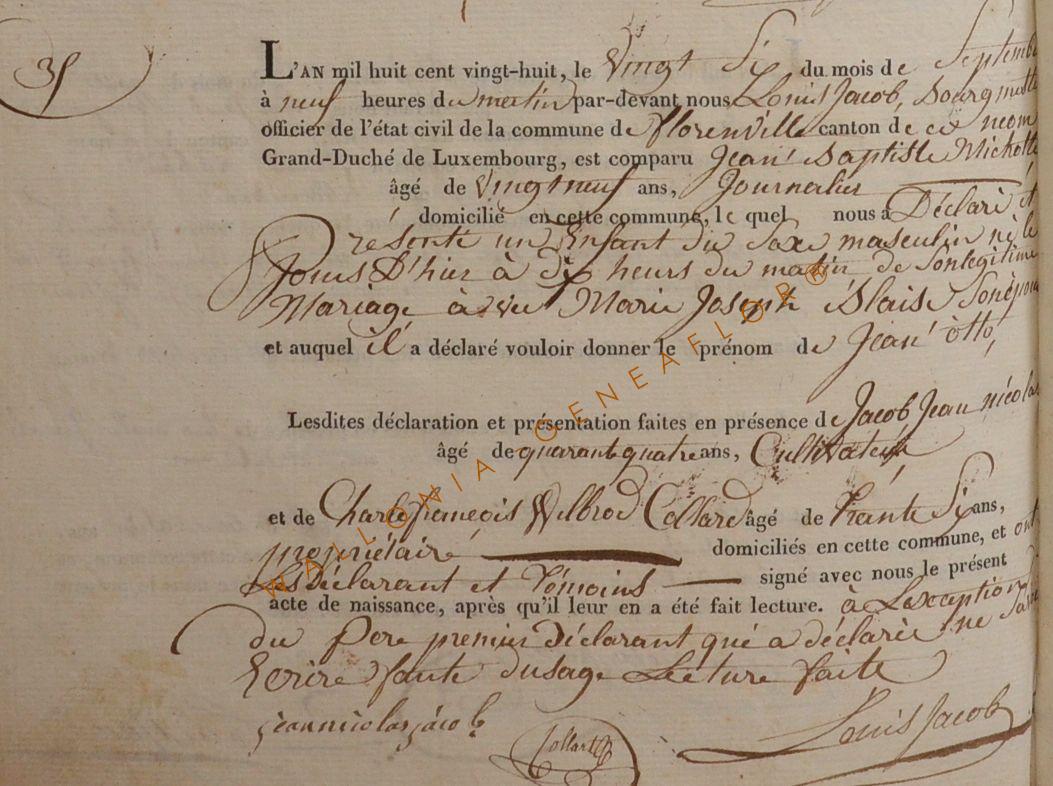 35
L'AN mil huit cent vingt-huit, le Vingt Six du mois de Septembre
à neuf heures du matin par-devant nous Louis Jacob, Bourgmestre
officier de l'état civil de la commune de florenville canton de ce nom
Grand-Duché de Luxembourg, est comparu Jean Baptiste Michotte
âgé de Vingt neuf ans, Journalier
domicilié en cette commune, le quel nous a Déclaré et
presenté un Enfant du Sexe masculin né le
Jours D'hier à dix heurs du matin de Son legitime
Mariage avec Marie Joseph Blaise Son épouse
et auquel il a déclaré vouloir donner le prénom de Jean otto,
Lesdites déclaration et présentation faites en présence de Jacob Jean nicolas
âgé de quarante quatre ans, Cultivateur
et de Charle Wilbrod Collard âgé de trante Six ans,
propriétaire domiciliés en cette commune, et ont
Les Déclarant et Témoins signé avec nous le présent
acte de naissance, après qu'il leur en a été fait lecture. à Lexception
du pere premier Déclarant qui a déclaré ne Savoir
Ecrire faute dusage Lecture faite
jean nicolas jacob
Collart
Louis Jacob
WALLONIA GENEAFLOR®